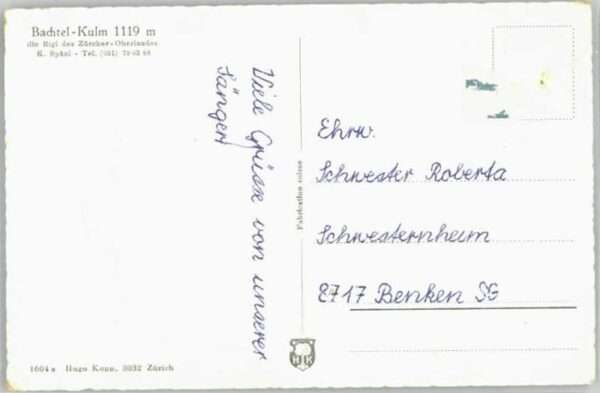 Bachtel-Kulm 1119 m
die Rigi des Zürcher-Oberlandes
K. - Tel. (051) 78
Viele Grüsse von unserer
Fabrication suisse
Ehrw.
Schwester Roberta
Schwesternheim
8717 Benken SG
HK
1664a Hugo Kopp, 8032 Zürich